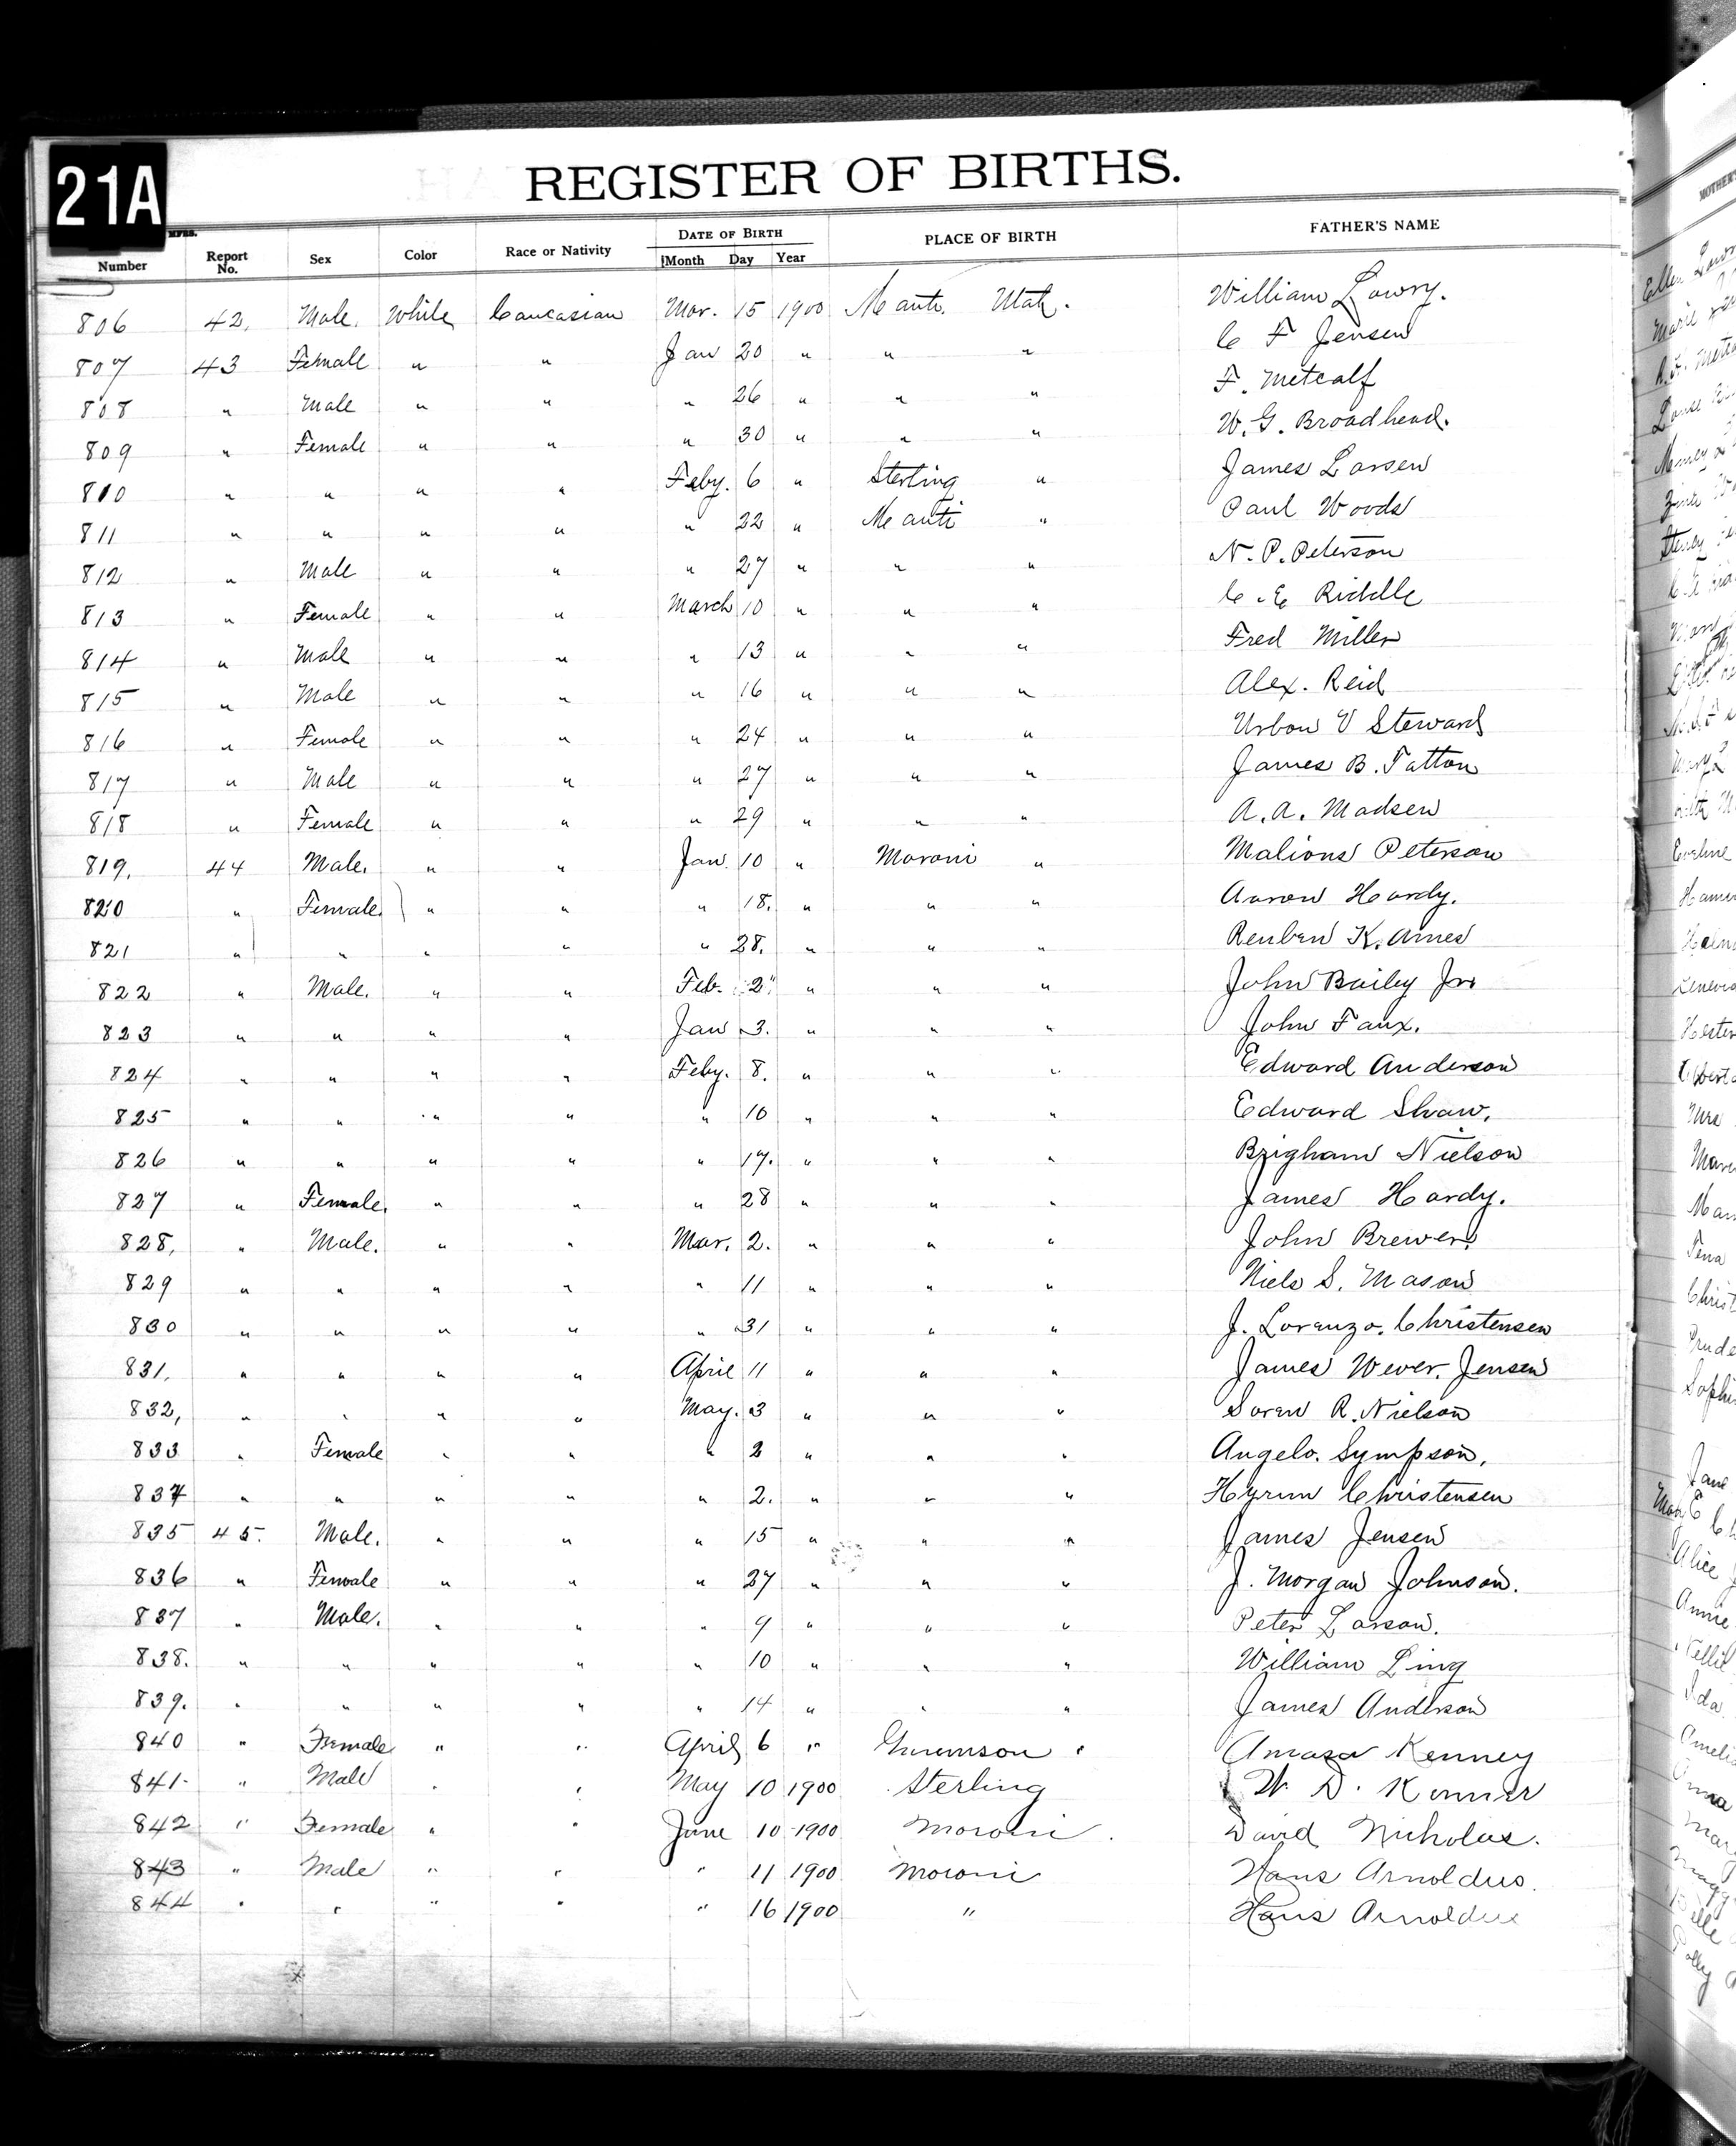 21A
REGISTER OF BIRTHS.
Number Report No. Sex Color Race or Nativity DATE OF BIRTH Month Day Year PLACE OF BIRTH FATHER'S NAME
806 42. Male. White Caucasian Mar. 15 1900 Manti. Utah. William Lowry.
807 43 Female " " Jan 20 " " " C F Jensen
808 " Male " " " 26 " " " F. Metcalf
809 " Female " " " 30 " " " W. G. Broadhead.
810 " " " " Feby. 6 " Sterling " James Larsen
811 " " " " " 22 " Manti " Paul Woods
812 " Male " " " 27 " " " N. P. Peterson
813 " Female " " March 10 " " " C. E Riddle
814 " Male " " " 13 " " " Fred Miller
815 " Male " " " 16 " " " Alex. Reid
816 " Female " " " 24 " " " Urbon V Steward
817 " Male " " " 27 " " " James B. Tatton
818 " Female " " " 29 " " " A. A. Madsen
819. 44 Male. " " Jan. 10 " Moroni " Malions Peterson
820 " Female. " " " 18. " " " Aaron Hardy.
821 " " " " " 28. " " " Reuben K. Ames
822 " Male. " " Feb. 2" " " " John Bailey Jr.
823 " " " " Jan 3. " " " John Faux.
824 " " " " Feby. 8. " " " Edward Anderson
825 " " " " " 10 " " " Edward Shaw.
826 " " " " " 17. " " " Brigham Nielson
827 " Female. " " " 28 " " " James Hardy.
828. " Male. " " Mar. 2. " " " John Brewer.
829 " " " " " 11 " " " Niels S. Mason
830 " " " " " 31 " " " J. Lorenzo. Christensen
831. " " " " April 11 " " " James Wever. Jensen
832, " " " " May. 3 " " " Soren R. Nielson
833 " Female " " " 2 " " " Angelo. Sympson.
834 " " " " " 2. " " " Hyrum Christensen
835 45. Male. " " " 15 " " " James Jensen
836 " Female " " " 27 " " " J. Morgan Johnson.
837 " Male. " " " 9 " " " Peter Larson.
838. " " " " " 10 " " " William Ling
839. " " " " " 14 " " " James Anderson
840 " Female " " April 6 " " Amasa Kenney
841. " Male " " May 10 1900 Sterling W. D.
842 " Female " " June 10 1900 Moroni. David Nicholas.
843 " Male " " " 11 1900 Moroni Hans Arnoldus.
844 " " " " " 16 1900 " Hans Arnoldus